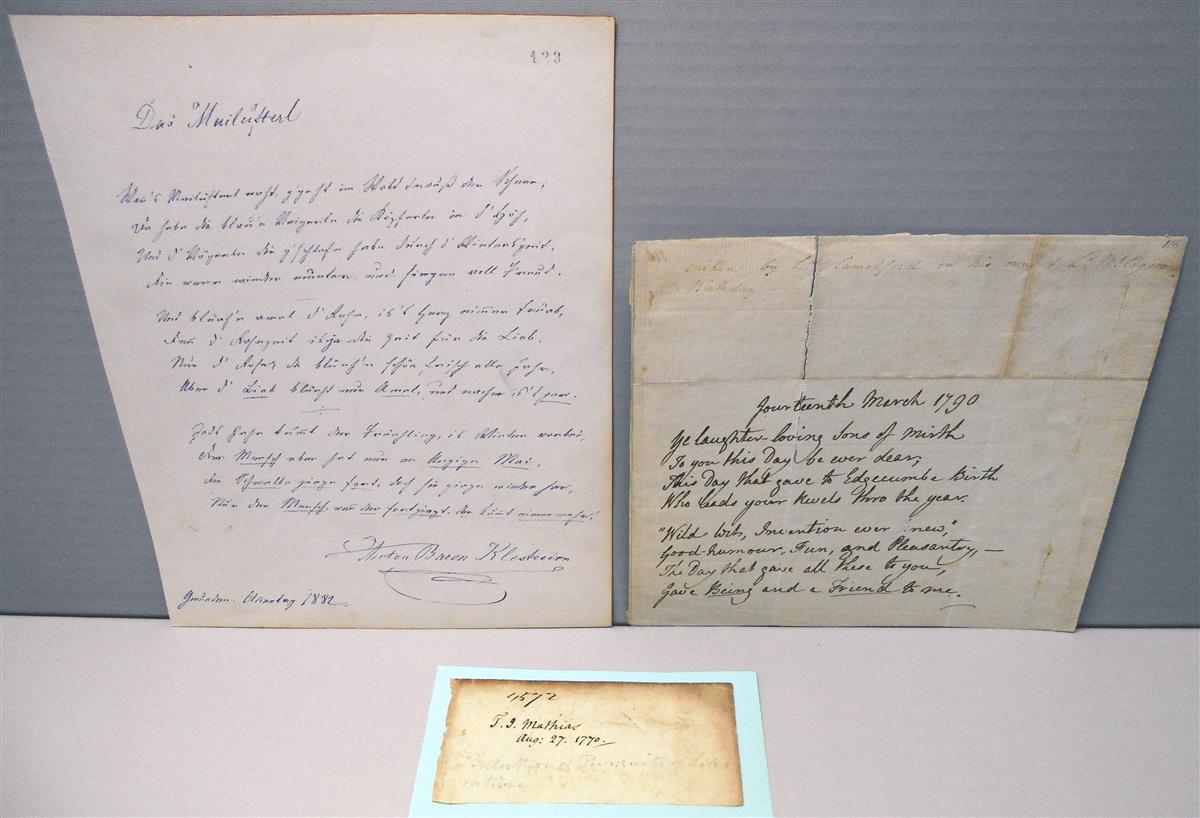 123
Das Mailüfterl
Wan's Mailüfterl waht, z'geht im Wald drauß der Schnee;
Da habn die blau'n Veigerln die Köpferln in d'Höh,
Und d'Vögerln die g'schlafn habn durch d'Winterszeit,
Die wern wieder munter und singen voll Freud.
Und blüah'n amal d'Rosn, is's Herz nimmer trüab,
Den d'Rosnzeit is ja die Zeit für die Liab.
Nur d'Rosn da blüah'n schön frisch alle Jahr,
Aber d'Liab blüaht nur Amal, und nacher is's gar.
Jeds Jahr kumt der Früahling, is Winter vorbei,
Der Mensch aber hat nur an Anzign Mai,
Die Schwalbn ziagn fort, doch sie ziagn wieder her,
Nur der Mensch wan der fortziagt, der kumt nimermehr!
Anton Baron Klesheim
Gmunden. 1882.
by Camelford on his own &
Birthday
fourteenth March 1790
Ye laughter-loving Sons of Mirth
To you this Day be ever dear;
This Day that gave to Edgecumbe Birth
Who leads your Revels thro the year.
"Wild wit, Invention ever new,"
Good-humour, Fun, and Pleasantry, —
The Day that gave all these to you,
Gave Being and a Friend to me.
4572
T. J. Mathias
Aug: 27. 1770.
Author of Pursuits of Lite
rature